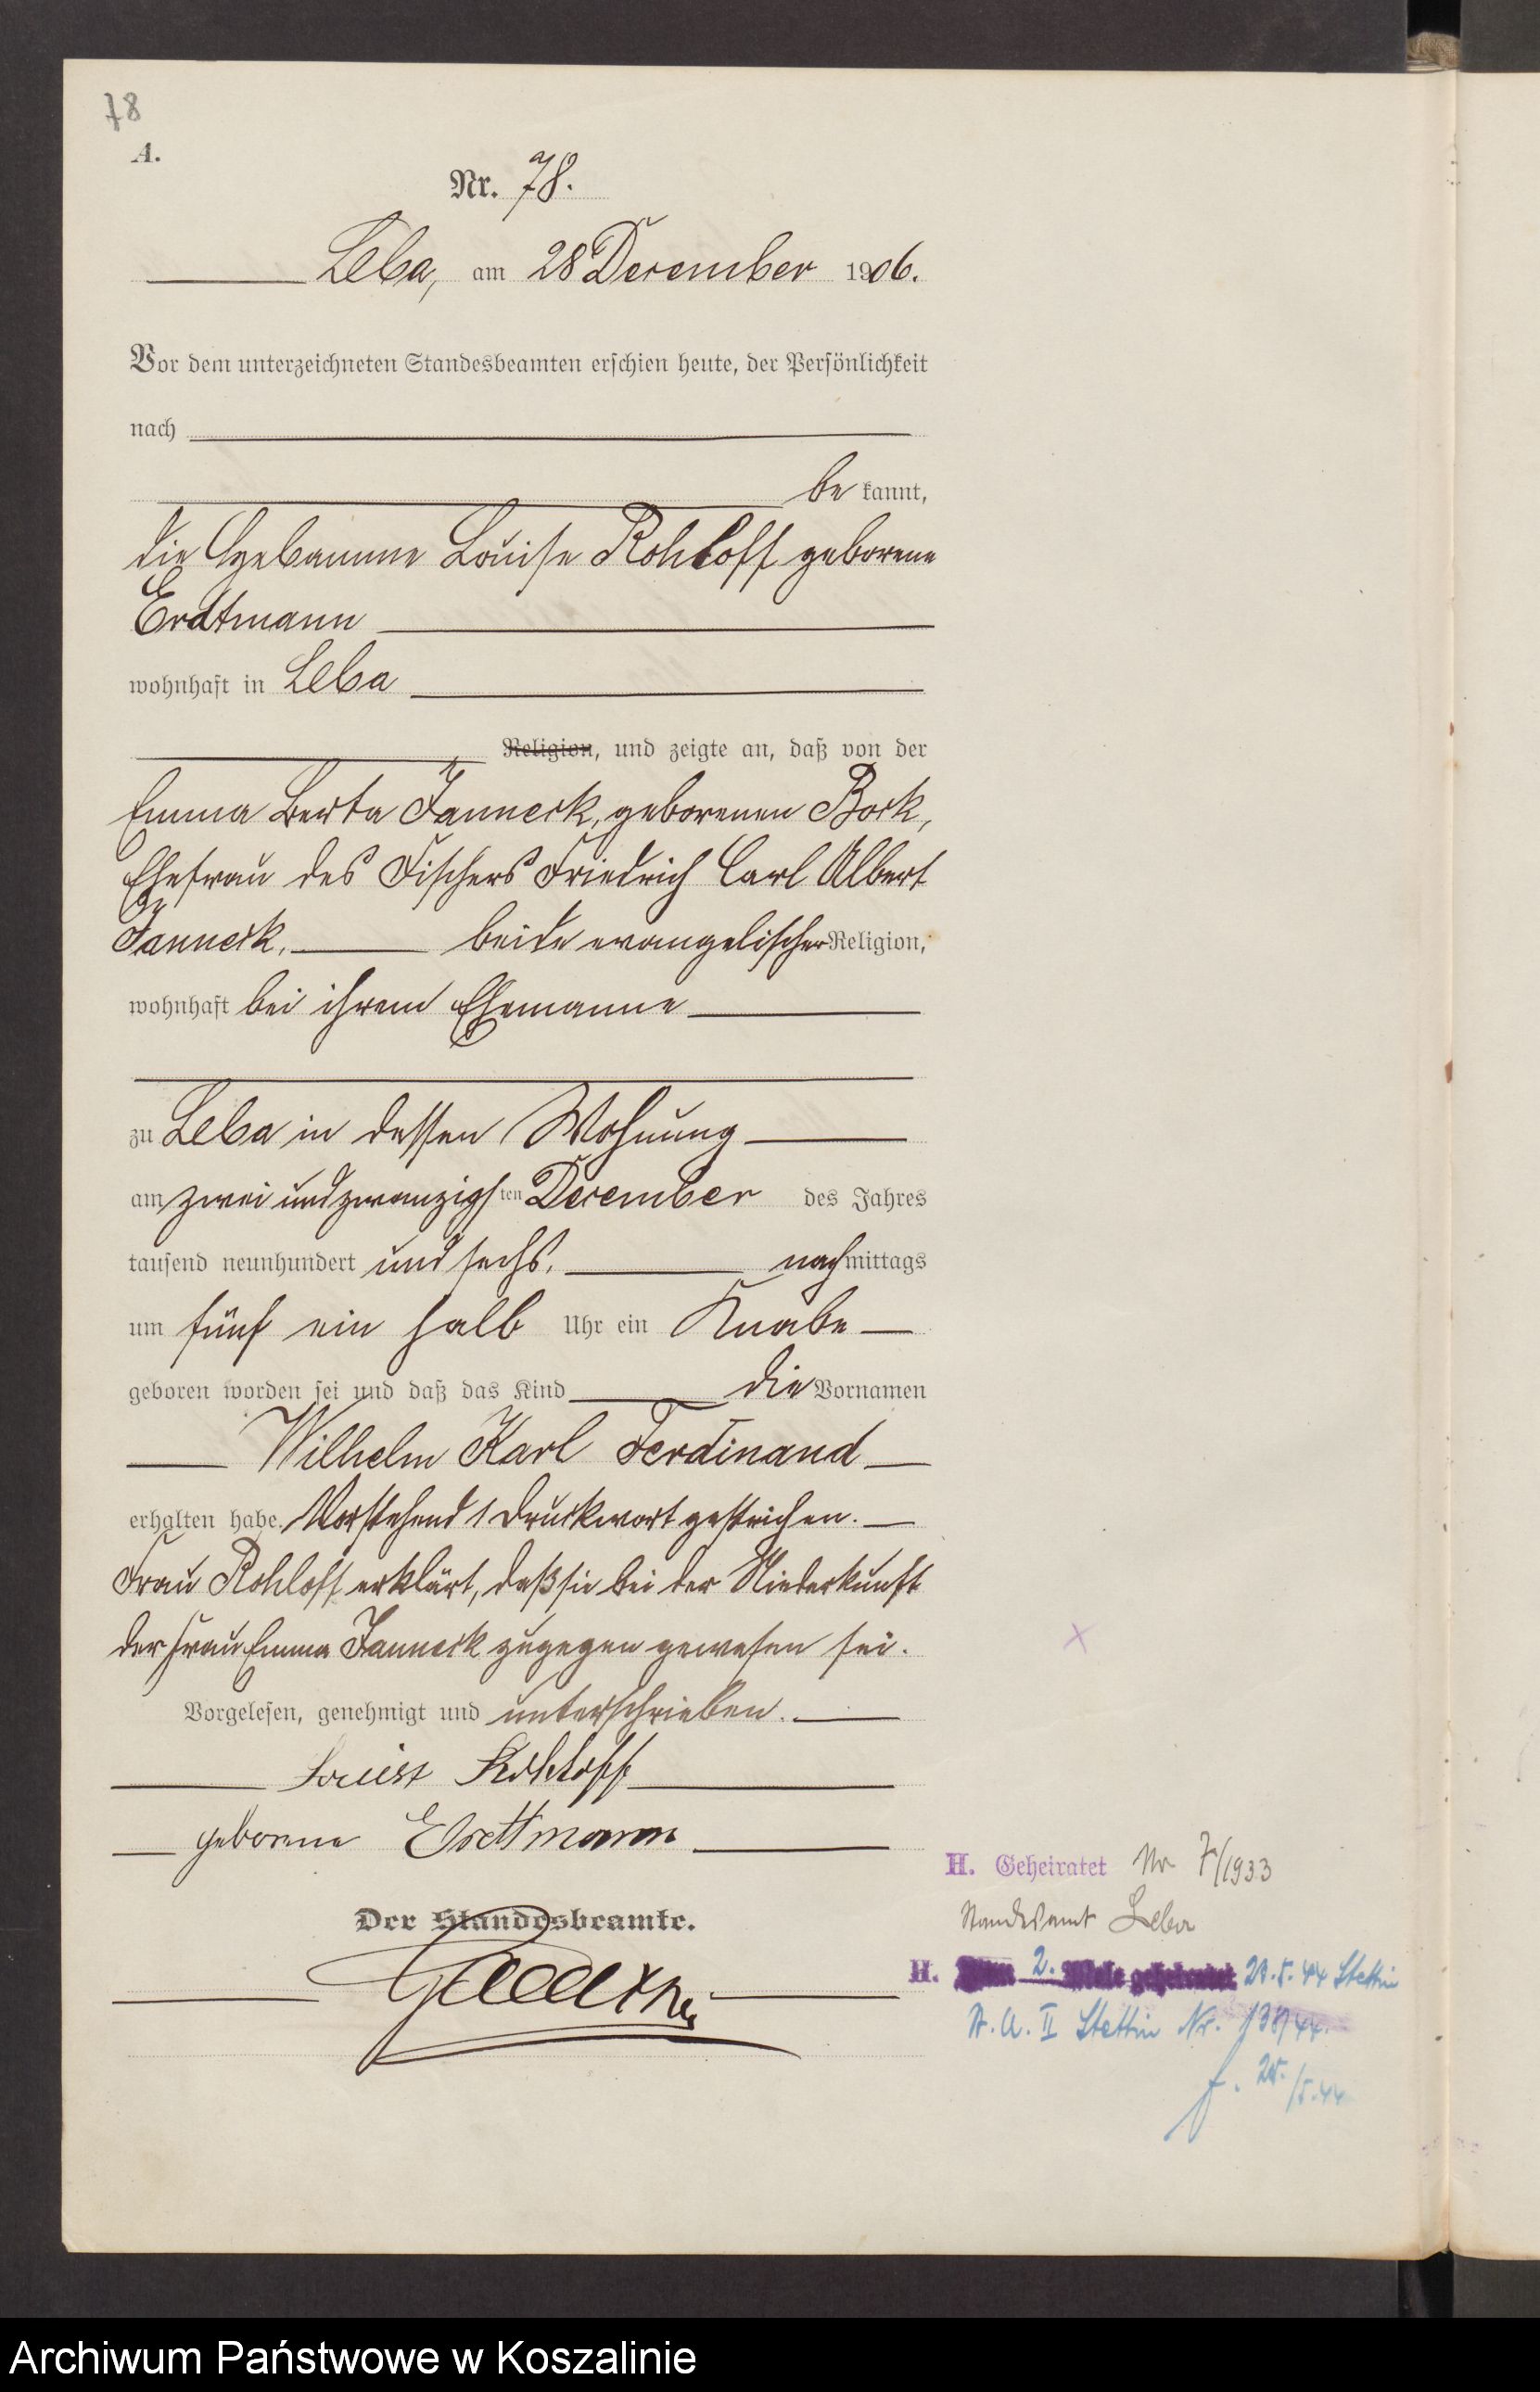 78
A.
Nr. 78.
Leba, am 28 December 1906.
Vor dem unterzeichneten Standesbeamten erschien heute, der Persönlichkeit
nach
be kannt,
die Hebamme Louise Rohloff geborene
Erdtmann
wohnhaft in Leba
Religion, und zeigte an, daß von der
Emma Berta Janneck, geborenen Bock,
Ehefrau des Fischers Friedrich Carl Albert
Janneck, beide evangelischer Religion,
wohnhaft bei ihrem Ehemanne
zu Leba in dessen Wohnung
am zwei und zwanzigsten December des Jahres
tausend neunhundert und sechs, nachmittags
um fünf ein halb Uhr ein Knabe
geboren worden sei und daß das Kind die Vornamen
Wilhelm Karl Ferdinand
erhalten habe. Vorstehend 1 Druckwort gestrichen.
Frau Rohloff erklärt, daß sie bei der Niederkunft
der Frau Emma Janneck zugegen gewesen sei.
Vorgelesen, genehmigt und unterschrieben.
Louise Rohloff
geborene Erdtmann
Der Standesbeamte.
H. Geheiratet Nr 7/1933
Standesamt Leba
H. 2. Male geheiratet Stettin
St. A. II Stettin Nr.
Archiwum Państwowe w Koszalinie